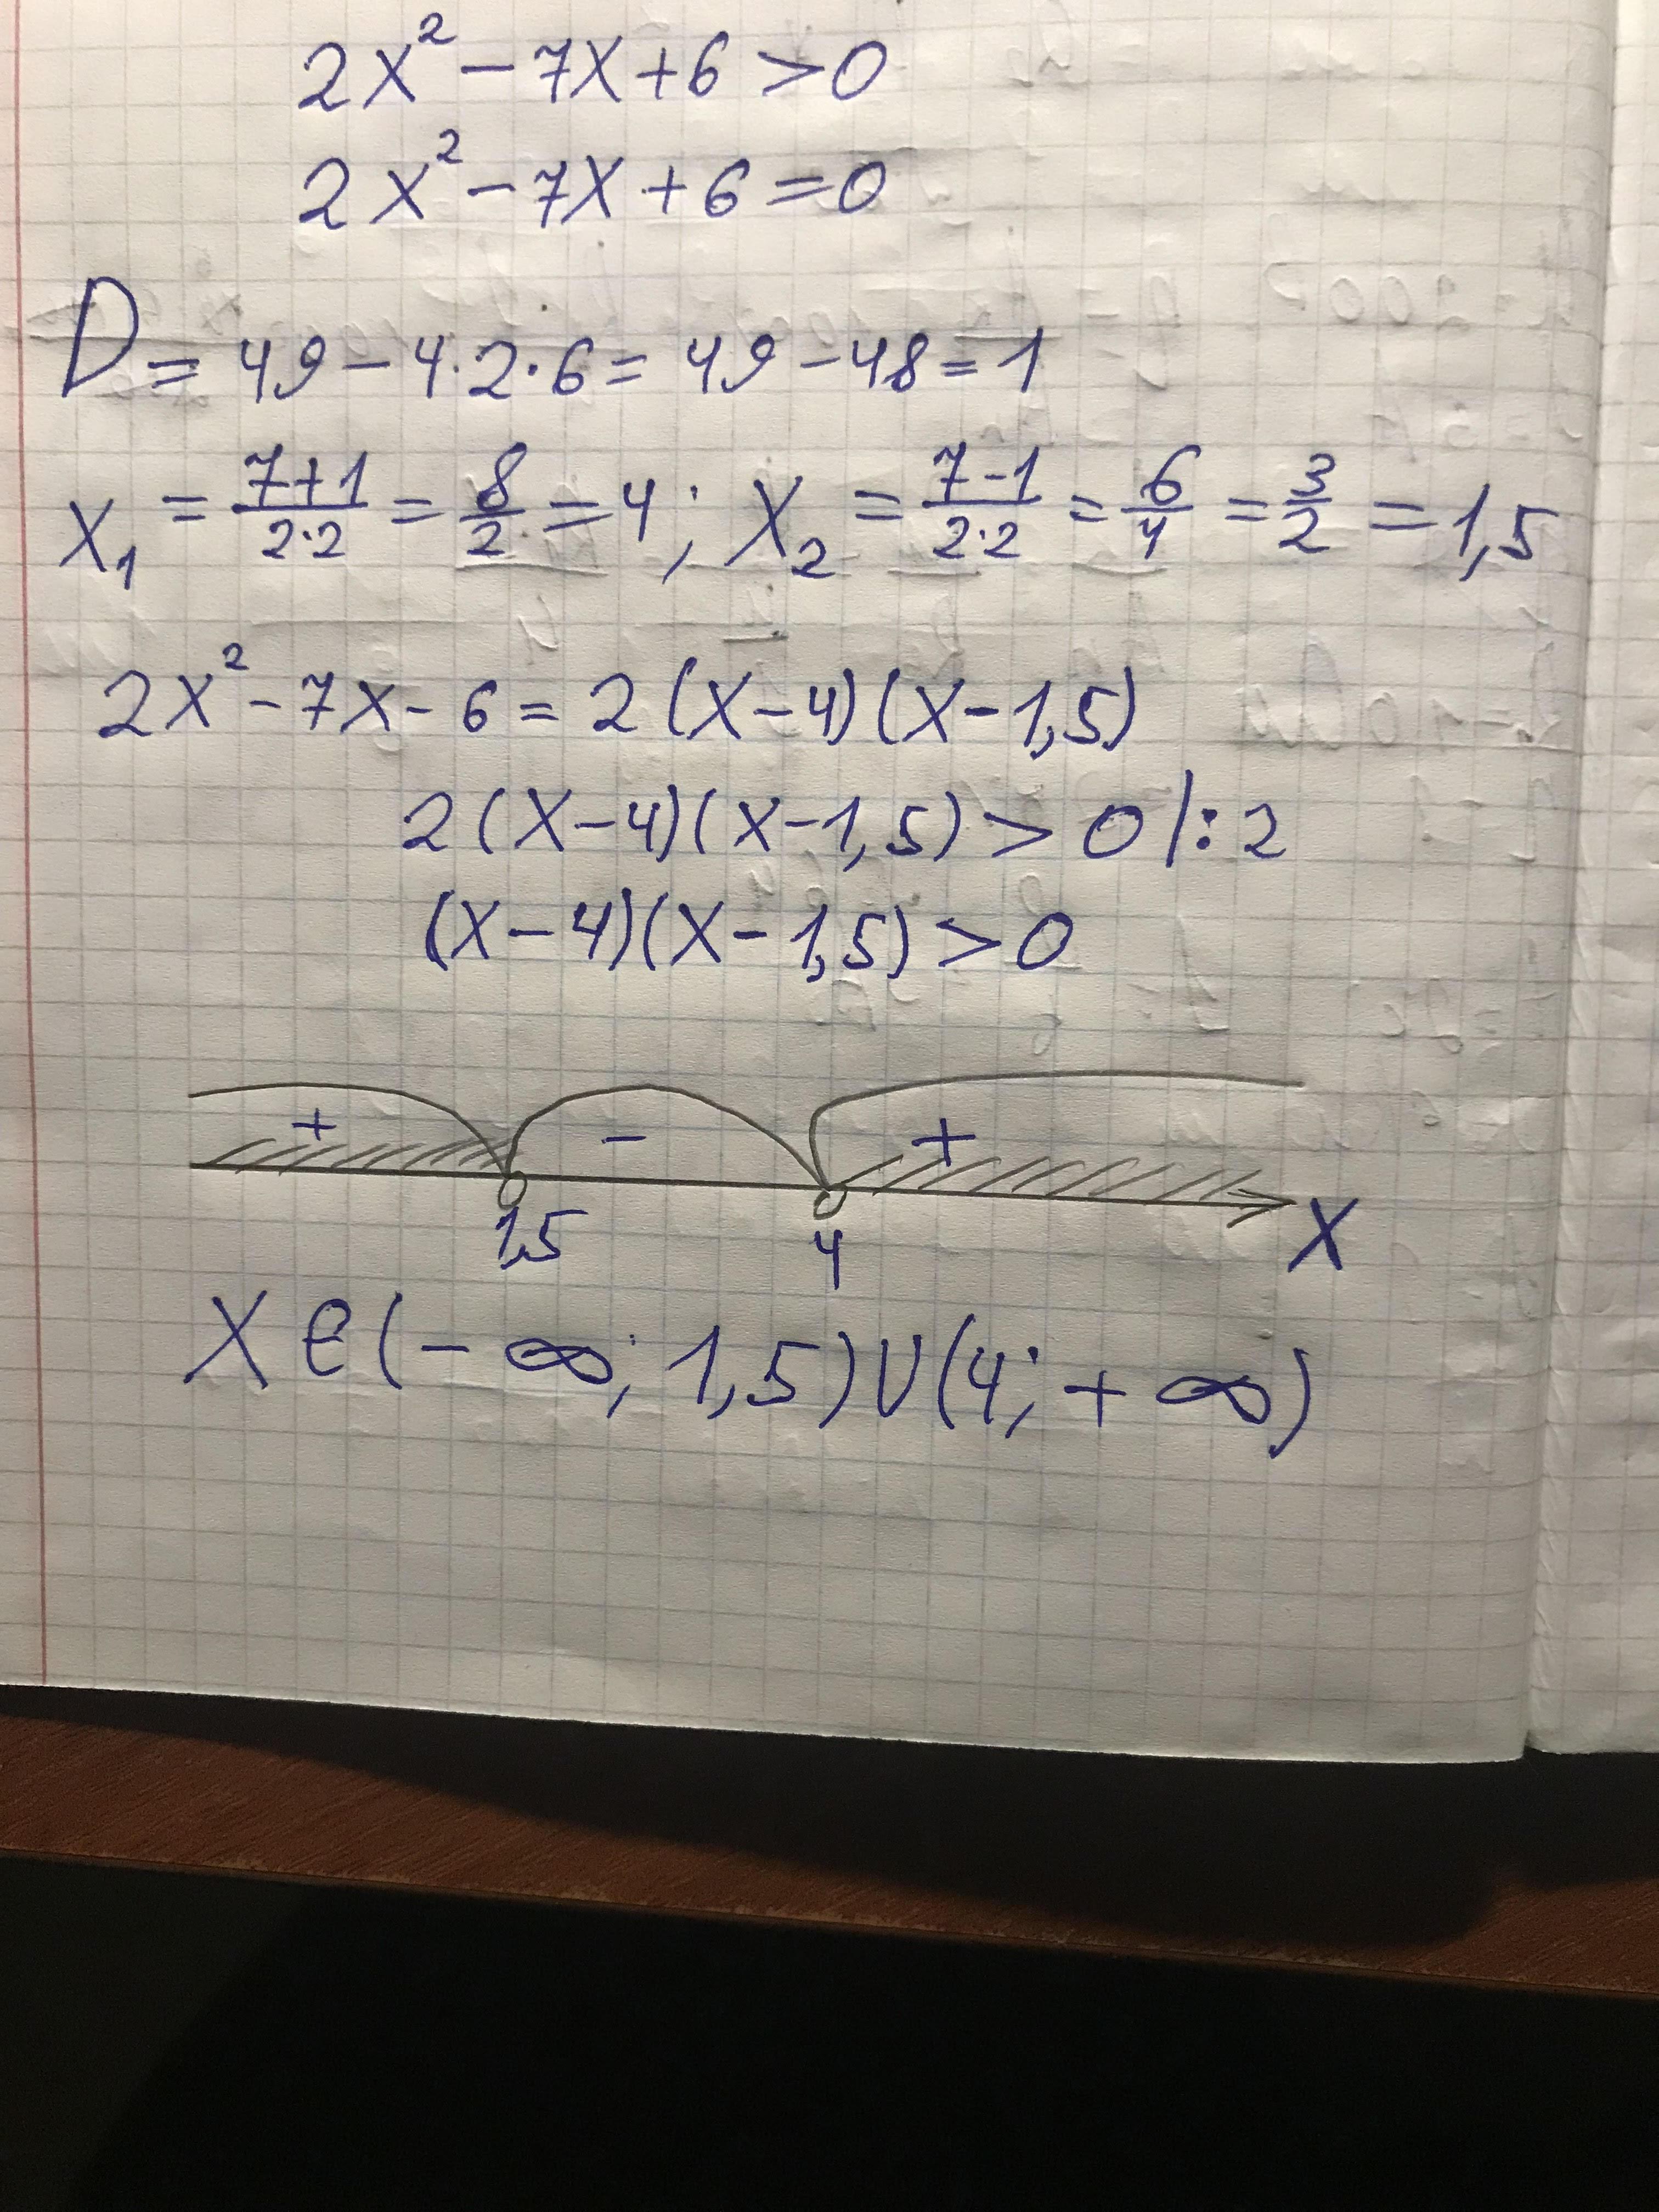 2x² - 7x + 6 > 0
2x² - 7x + 6 = 0
D = 49 - 4·2·6 = 49 - 48 = 1
x₁ = (7+1)/(2·2) = 8/2 = 4; x₂ = (7-1)/(2·2) = 6/4 = 3/2 = 1,5
2x² - 7x - 6 = 2(x-4)(x-1,5)
2(x-4)(x-1,5) > 0 |:2
(x-4)(x-1,5) > 0
+ - +
1,5 4 x
x ∈ (-∞; 1,5) ∪ (4; +∞)